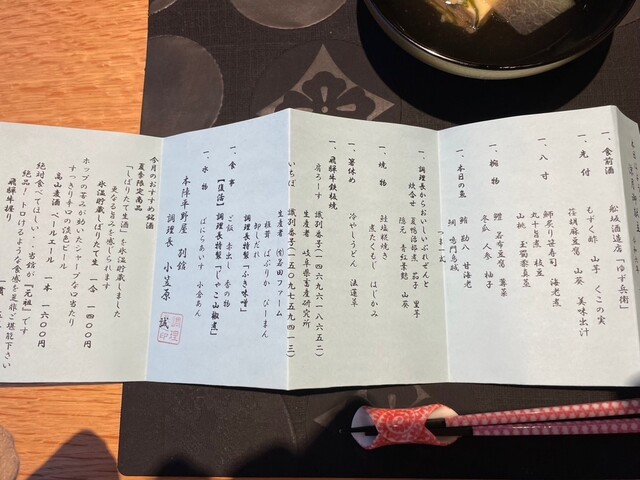 一、食前酒
舩坂酒造店「ゆず兵衛」
一、先付
もずく酢　山芋　くこの実
筏胡麻豆腐　山葵　美味出汁
一、八寸
鮎炙り笹寿司　海老煮
丸十旨煮　枝豆
山桃　玉蜀黍真薯
一、椀物
鱧　若布豆腐　蓴菜
冬瓜　人参　柚子
一、本日の魚
鮪　勘八　甘海老
鳴門烏賊
つま一式
一、調理長からおいしいぷれぜんと
炊合せ　夏鴨治部煮　茄子　里芋
隠元　青紅葉麩　山葵
一、焼物
鮭塩糀焼き
煮たくもじ　はじかみ
一、箸休め
冷やしうどん　法蓮草
一、飛騨牛鉄板焼
肩ろーす　識別番号（一四六九六一八六五二）
生産者　岐阜県畜産研究所
いちぼ　識別番号（一五〇九七五九四一三）
生産者　㈲若田ファーム
椎茸　かぼちゃ　ぴーまん
卸しだれ
調理長特製「ふき味噌」
【復活】調理長特製「じゃこ山椒煮」
一、食事
ご飯　赤出し　香の物
一、水物
ばにらあいす　小倉あん
本陣平野屋　別館
調理長　小笠原　誠
調理
印
今月のおすすめ銘酒
夏季限定商品
「しぼりたて生酒」を氷温貯蔵しました
更なる旨みを感じられます
氷温貯蔵しぼりたて生　一合　一四〇〇円
ホップの苦みが効いたシャープな口当たり
すっきり辛口の淡色ビール
高山麦酒　ペールエール　一本　一六〇〇円
絶対食べてほしい・・当館が「元祖」です
絶品！トロけるような食感を是非ご堪能下さい
飛騨牛握り　一貫